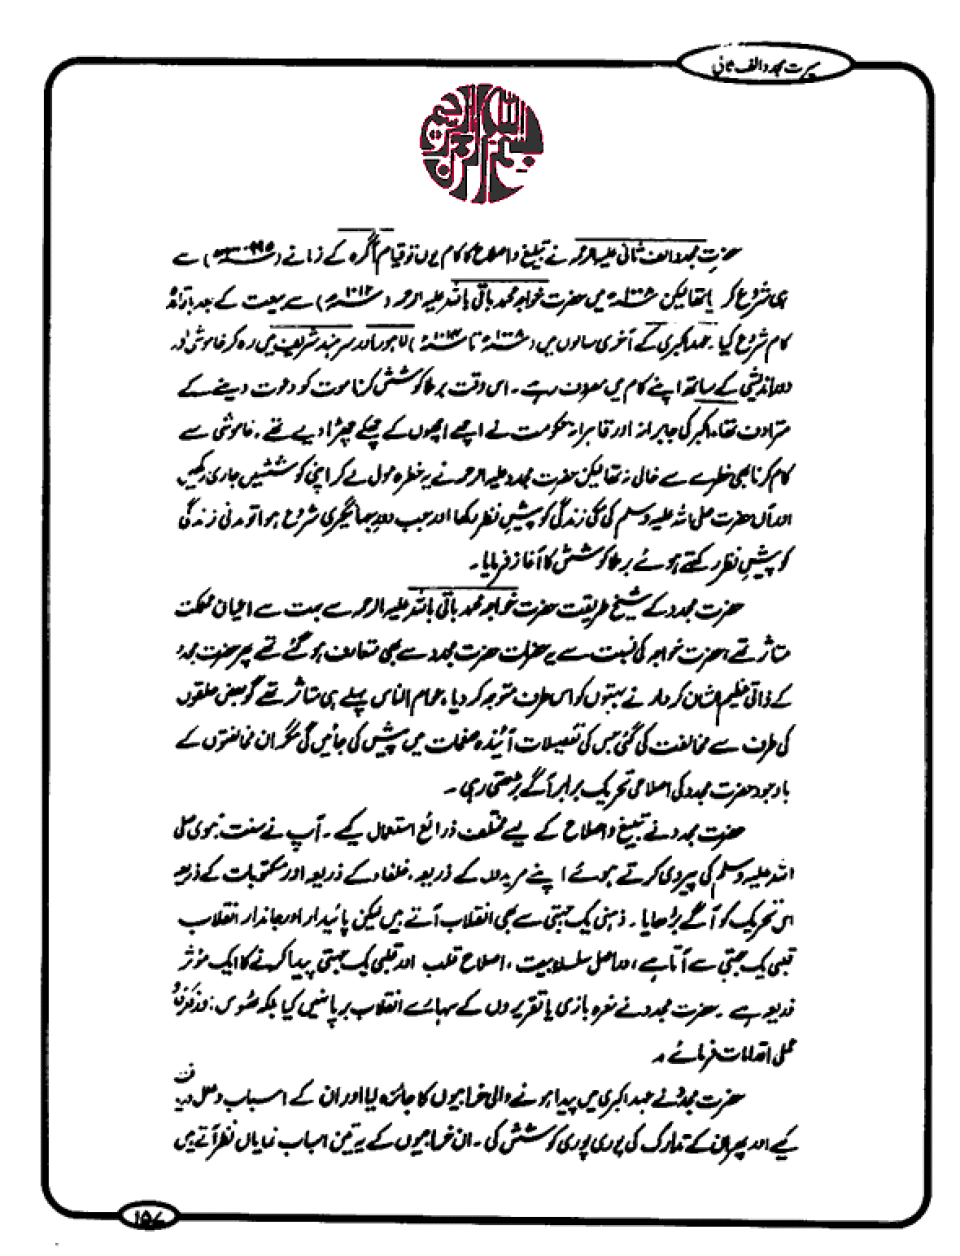 سیرت مجدد الف ثانی
بسم اللہ الرحمن الرحیم
حضرت مجدد الف ثانی علیہ الرحمہ نے تبلیغ و اصلاح کا کام یوں تو قیام آگرہ کے زمانے ( ) سے
ہی شروع کر لیا تھا لیکن ۱۰۰۸ھ میں حضرت خواجہ محمد باقی باللہ علیہ الرحمہ ( ۱۰۱۲ھ ) سے بیعت کے بعد باقاعدہ
کام شروع کیا۔ عہد اکبری کے آخری سالوں میں ( ۱۰۰۸ھ تا ) لاہور اور سرہند شریف میں رہ کر خاموشی اور
دور اندیشی کے ساتھ اپنے کام میں مصروف رہے۔ اس وقت برملا کوشش کرنا موت کو دعوت دینے کے
مترادف تھا، اکبر کی جابرانہ اور قاہرانہ حکومت نے اچھے اچھوں کے چھکے چھڑا دیے تھے، خاموشی سے
کام کرنا بھی خطرے سے خالی نہ تھا لیکن حضرت مجدد علیہ الرحمہ نے یہ خطرہ مول لے کر اپنی کوششیں جاری رکھیں
اور آں حضرت صلی اللہ علیہ وسلم کی مکی زندگی کو پیش نظر رکھا اور جب دور جہانگیری شروع ہوا تو مدنی زندگی
کو پیش نظر رکھتے ہوئے برملا کوشش کا آغاز فرمایا۔
حضرت مجدد کے شیخ طریقت حضرت خواجہ محمد باقی باللہ علیہ الرحمہ سے بہت سے اعیان مملکت
متاثر تھے، حضرت خواجہ کی نسبت سے یہ حضرات حضرت مجدد سے بھی متعارف ہو گئے تھے پھر حضرت مجدد
کے ذاتی عظیم الشان کردار نے بہتوں کو اس طرف متوجہ کر دیا، عوام الناس پہلے ہی متاثر تھے گو بعض حلقوں
کی طرف سے مخالفت کی گئی جس کی تفصیلات آئندہ صفحات میں پیش کی جائیں گی مگر ان مخالفتوں کے
باوجود حضرت مجدد کی اصلاحی تحریک برابر آگے بڑھتی رہی۔
حضرت مجدد نے تبلیغ و اصلاح کے لیے مختلف ذرائع استعمال کیے۔ آپ نے سنت نبوی صلی
اللہ علیہ وسلم کی پیروی کرتے ہوئے اپنے مریدوں کے ذریعہ، خلفاء کے ذریعہ اور مکتوبات کے ذریعہ
اس تحریک کو آگے بڑھایا۔ ذہنی یک جہتی سے بھی انقلاب آتے ہیں لیکن پائیدار اور جاندار انقلاب
قلبی یک جہتی سے آتا ہے، دراصل سلسلہ بیعت، اصلاح قلب اور قلبی یک جہتی پیدا کرنے کا ایک مؤثر
ذریعہ ہے۔ حضرت مجدد نے نعرہ بازی یا تقریروں کے سہارے انقلاب برپا نہیں کیا بلکہ ٹھوس،
عملی اقدامات فرمائے۔
حضرت مجدد نے عہد اکبری میں پیدا ہونے والی خرابیوں کا جائزہ لیا اور ان کے اسباب و علل دریافت
کیے اور پھر ان کے تدارک کی پوری پوری کوشش کی۔ ان خرابیوں کے یہ تین اسباب نمایاں نظر آتے ہیں
۱۵۷